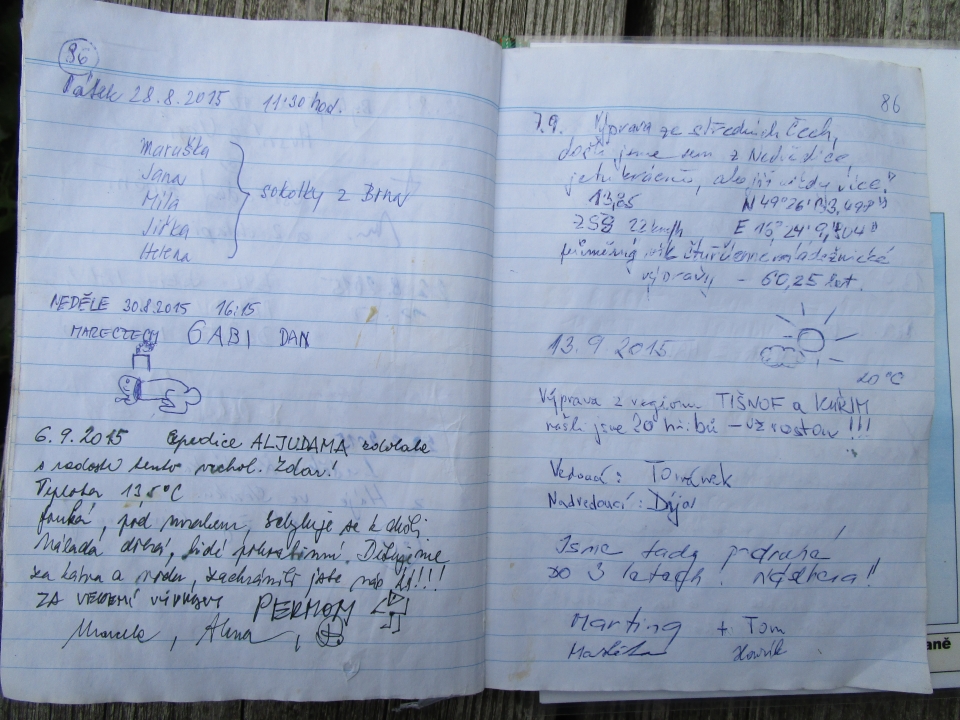 86
Pátek 28.8.2015 11:30 hod.
Maruška
Jana
Míla
Jitka
Helena
sokolky z Brna
NEDĚLE 30.8.2015 16:15
MARECZECH GABI DAN
6.9.2015 Expedice ALJUDAMA zdolala
s radostí tento vrchol. Zdar!
Teplota 13,5°C
fouká, pod mrakem, schyluje se k dešti
Nálada dobrá, lidé pohostinní. Děkujeme
za a vodu, zachránili jste nás!!!
ZA VEDENÍ VÝPRAVY PERMON
Marcela, Alena,
86
7.9. Výprava ze středních Čech,
došli jsme sem z Nedvědice
více."
13,85 N 49°26'
ZSZ 22 km/h E 16°24'
průměrný věk čtyřčlenné mládežnické
výpravy - 60,25 let.
13.9 2015
20°C
Výprava z regionu TIŠNOF a KUŘIM
našli jsme 20 hřibů - vzrostou!!!
Vedoucí: Tománek
Nadvedoucí:
Jsme tady podruhé
po 3 letach. Nádhera!!
Martina + Tom
aně